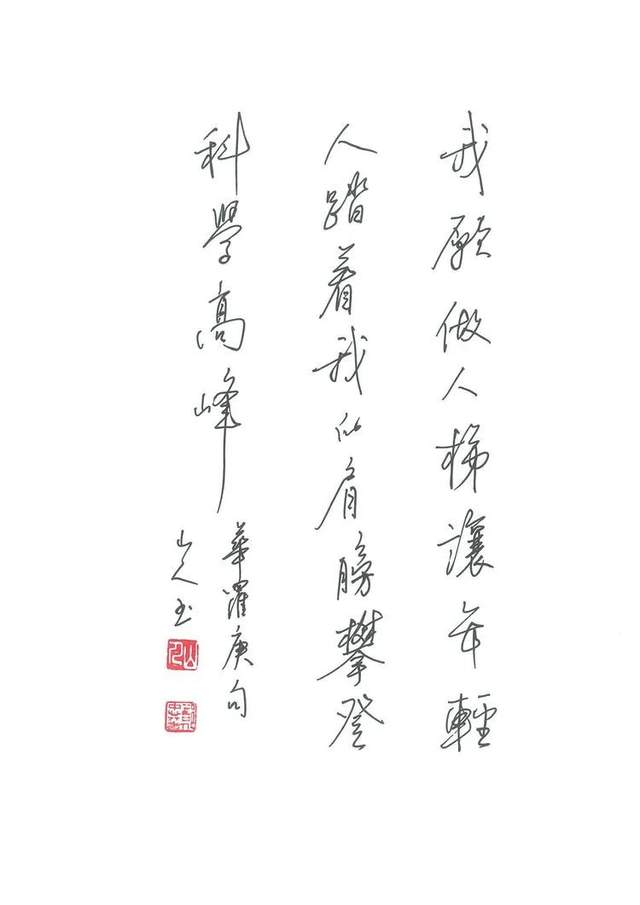 我願做人梯讓年輕
人踏着我的肩膀攀登
科學高峰
華羅庚句
山人书
山人